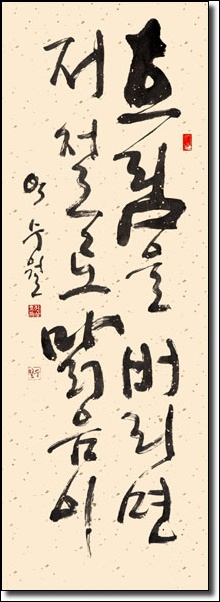 흐림을 버리면
저절로 맑음이
수월